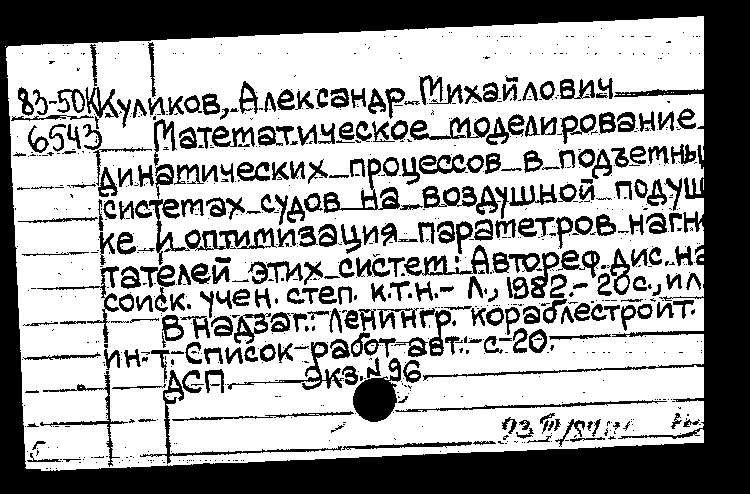 83-50К Куликов, Александр Михайлович
6543 Математическое моделирование
динамических процессов в подъемны
системах судов на воздушной подуш
ке и оптимизация параметров нагне
тателей этих систем: Автореф. дис. на
соиск. учен. степ. к.т.н. - Л., 1982 - 20 с., ил
В надзаг.: Ленингр. кораблестроит.
ин-т. Список работ авт.: с. 20.
ДСП. Экз. № 96.
5